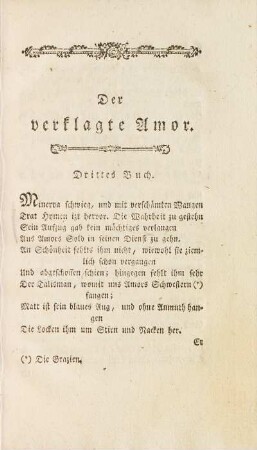 Der
verklagte Amor.
Drittes Buch.
Minerva schwieg, und mit verschämten Wangen
Trat Hymen itzt hervor. Die Wahrheit zu gestehn
Sein Aufzug gab kein mächtiges verlangen
Aus Amors Sold in seinen Dienst zu gehn.
An Schönheit fehlts ihm nicht, wiewohl sie ziem-
lich schon vergangen
Und abgeschossen schien; hingegen fehlt ihm sehr
Der Talisman, womit uns Amors Schwestern (*)
fangen;
Matt ist sein blaues Aug, und ohne Anmuth han-
gen
Die Locken ihm um Stirn und Nacken her.
Er
(*) Die Grazien.